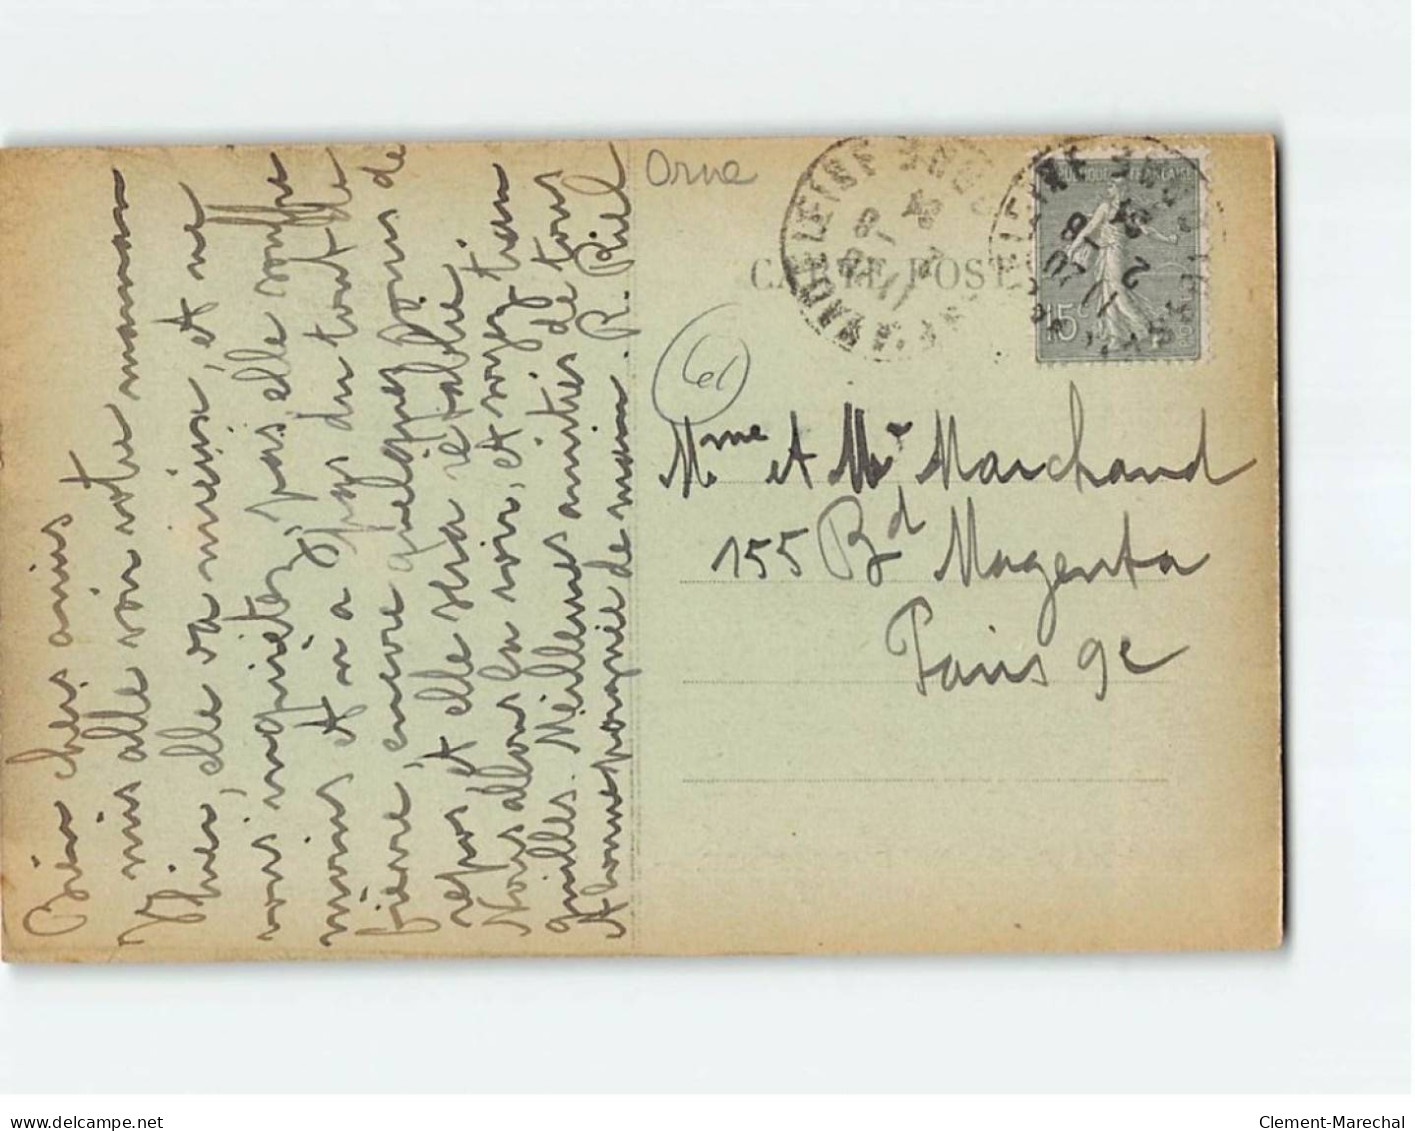 Bien chers amis
suis allé voir votre maman
Hier, elle va mieux, et ne
vous inquiétez pas elle souffre
moins et n'a pas du tout de
fièvre, encore quelques jours de
repos et elle sera rétablie.
Nous allons la voir, et soyez tran
quilles. Meilleures amitiés de tous
et bonne poignée de main R. Riel
Orne
CARTE POST
15
61
Mme et Mr Marchand
155 Bd Magenta
Paris 9e
delcampe.net
Clement-Marechal